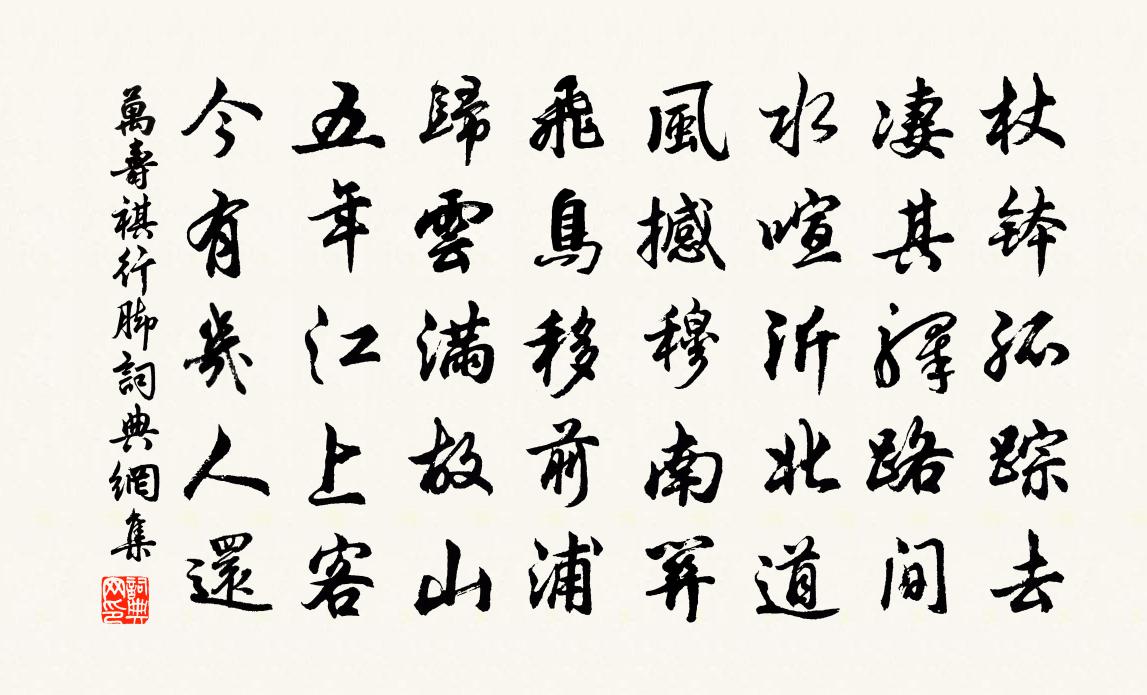 杖鉢孤踪去
凄其驛路間
水喧沂北道
風撼穆南關
飛鳥移前浦
歸雲滿故山
五年江上客
今有幾人還
萬壽祺行脚詞典網集
詞典网印